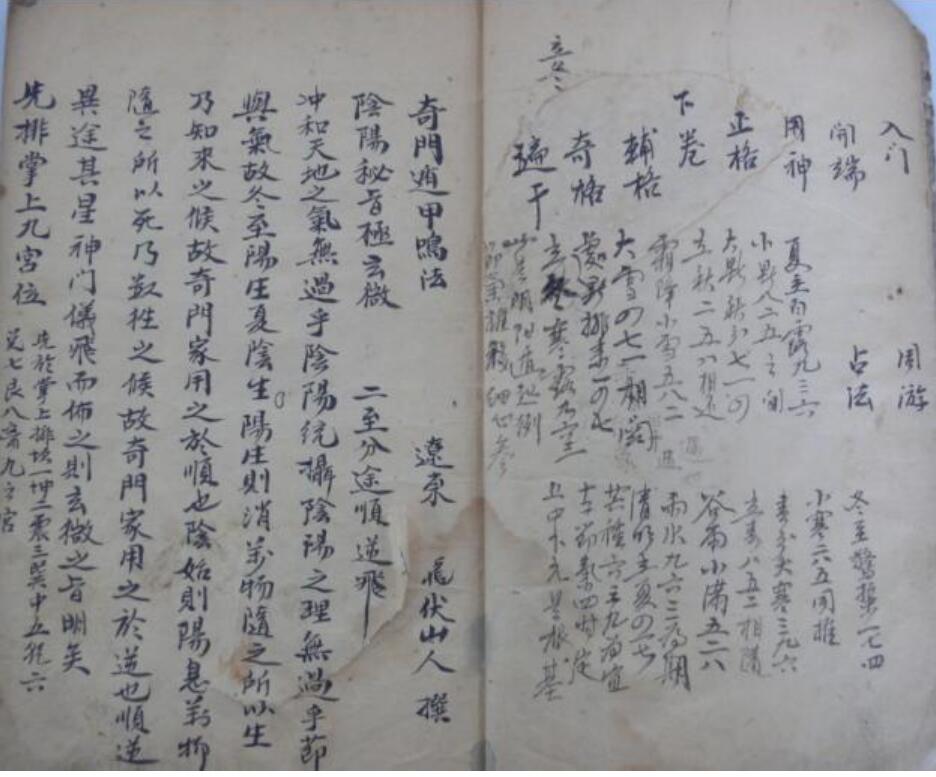 入门
周游
開端
占法
用神
正格
下卷
輔格
奇格
干
立冬
夏至白露九三六
小暑八二五之间
大暑秋分七一四
立秋二五八相近
霜降小雪五八二
大雪四七一期间
處暑排來一四七
立冬寒露
細心參
冬至驚蟄一七四
小寒二八五同推
春分大寒三九六
立春八五二相隨
谷雨小滿五二八
雨水九六三為期
清明立夏四一七
芒種六三九為宜
節氣四时定
上中下元是根基
奇門遁甲鳴法 遼東 飛伏山人 撰
陰陽秘旨極玄微 二至分途順逆飛
冲和天地之氣無過乎陰陽統攝陰陽之理無過乎節
與氣故冬至陽生夏陰生陽生則消萬物隨之所以生
乃知來之候故奇門家用之於順也陰始則陽息萬物
隨之所以死乃數往之候故奇門家用之於逆也順逆
異途其星神门儀飛而佈之則玄微之旨明矣
先排掌上九宮位 先於掌上排坎一坤二震三巽中五乾六
兌七艮八离九之宫